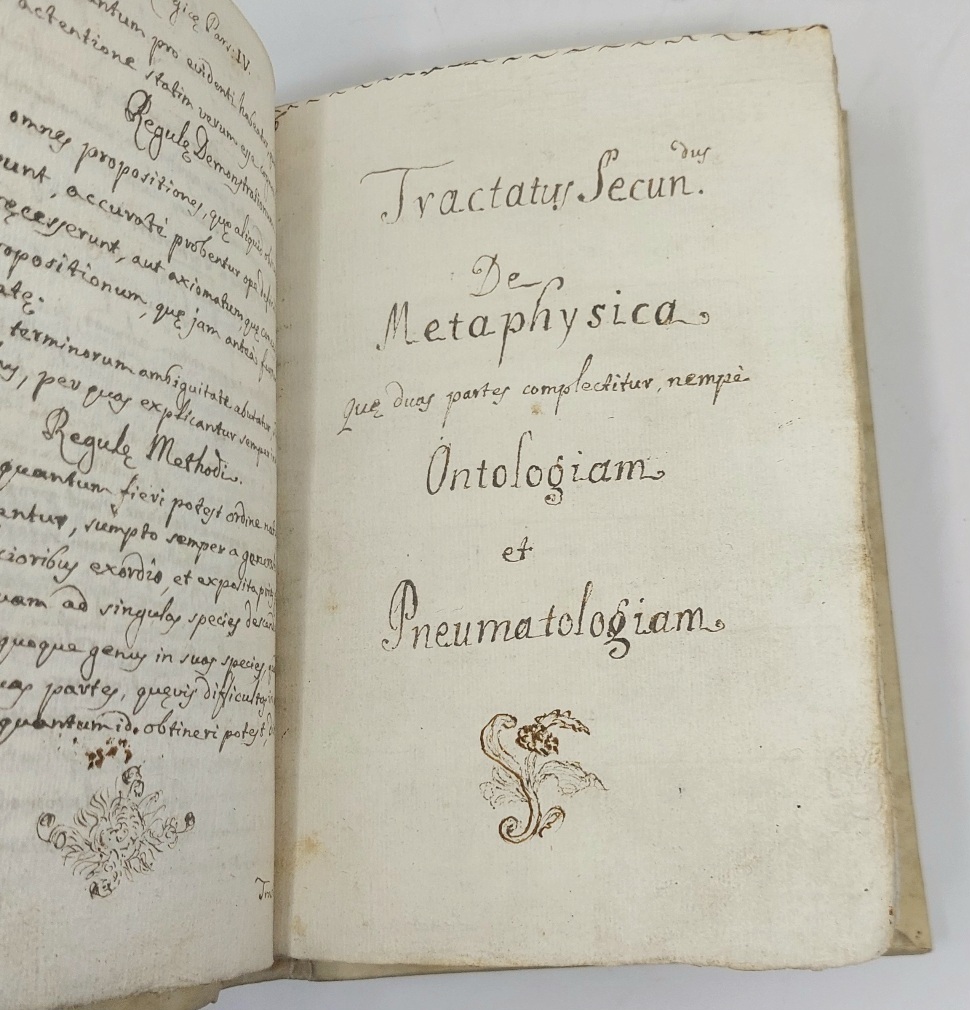 gicę Pars. IV.
antum pro evidenti habeatur
actentione statim verum esse
Regulę Demonstrationum
omnes propositiones, quę aliquid
unt, accuratè probentur ope
ręcesserunt, aut axiomatum, quę
ropositionum, quę jam anteà
atę.
terminorum ambiguitate abutatur
per quas explicantur semper
Regulę Methodi.
quantum fieri potest ordine
antur, sumpto semper a
cioribus exordio, et exposita
uam ad singulas species
quoque genus in suas species,
uas partes, quęvis
quantum id obtineri potest,
Tractatus Secun.dus
De
Metaphysica
Quę duas partes complectitur, nempè
Ontologiam
et
Pneumatologiam